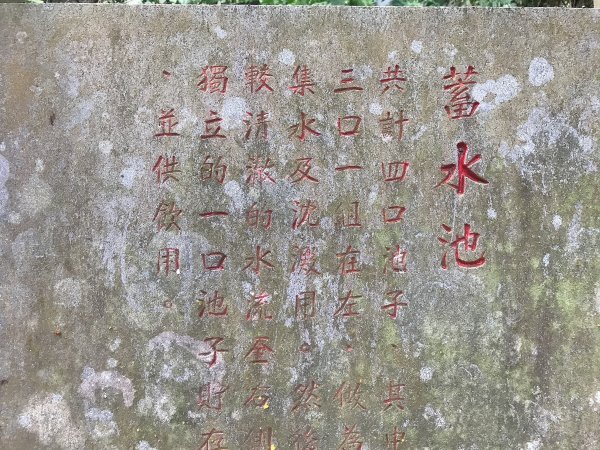 蓄水池
共計四口池子、其中
三口一組在左，做為
集水及沈澱用。然後
較清澈的水流至右側
獨立的一口池子貯存
、並供飲用。